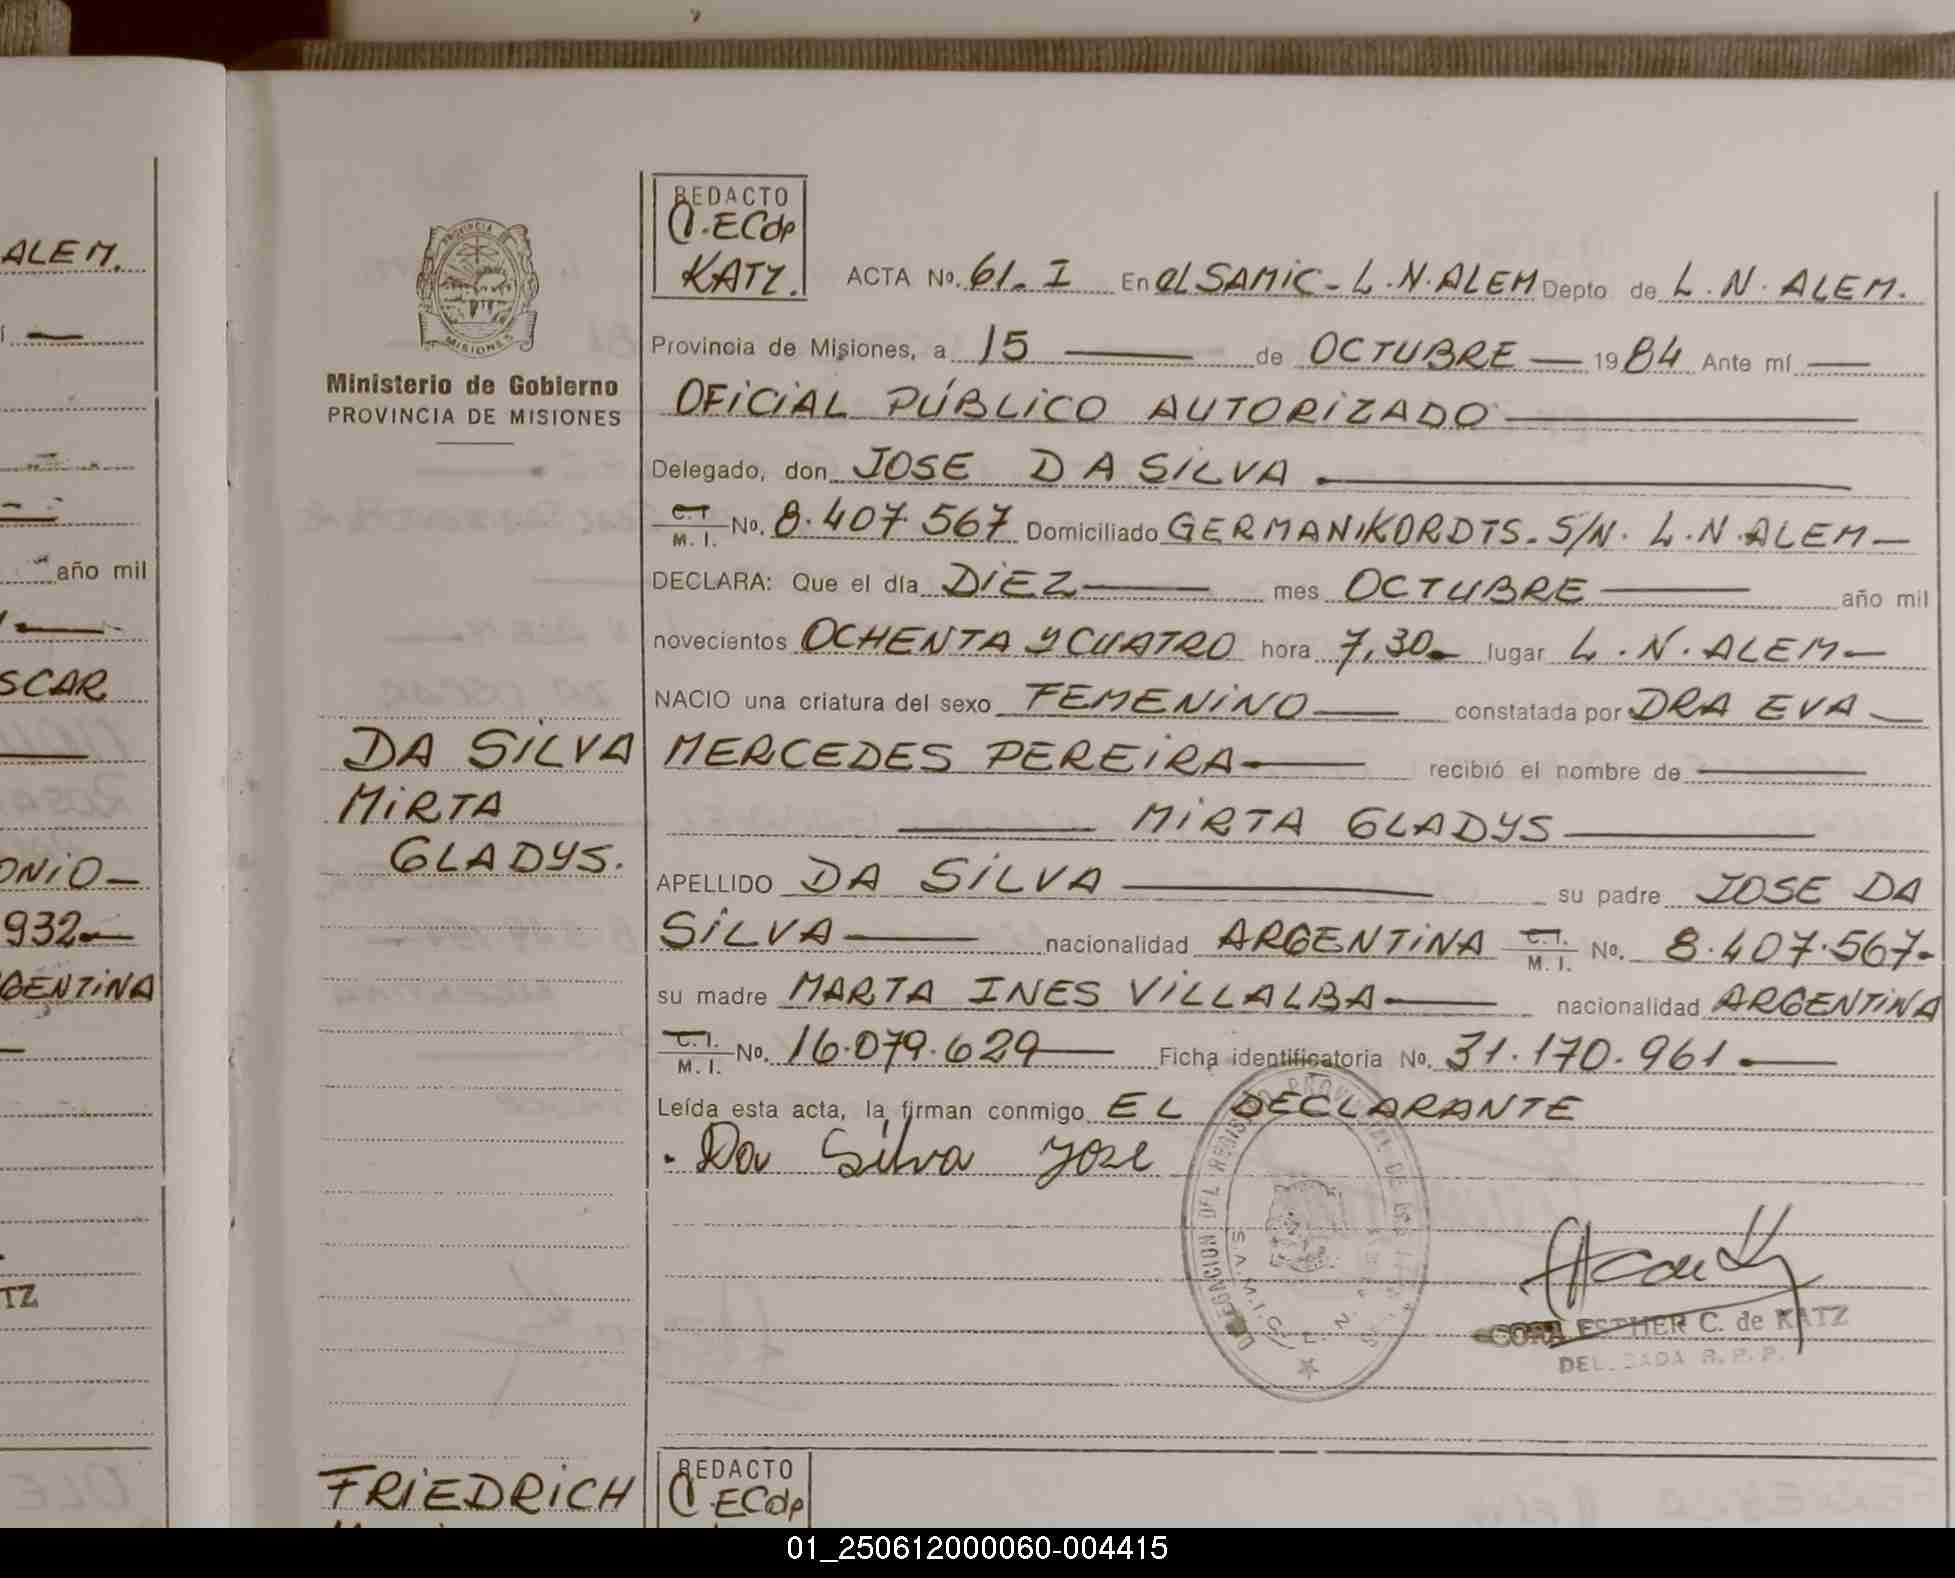 ALEM.
año mil
SCAR
ONIO
932
GENTINA
TZ
PROVINCIA DE
MISIONES
Ministerio de Gobierno
PROVINCIA DE MISIONES
DA SILVA
MIRTA
GLADYS.
REDACTO
C.ECdp
KATZ.
ACTA No. 61. I En el SAMIC - L.N.ALEM Depto de L.N.ALEM.
Provincia de Misiones, a 15 de OCTUBRE 1984 Ante mí
OFICIAL PÚBLICO AUTORIZADO
Delegado, don JOSE DA SILVA
C.I. M. I. No. 8.407.567 Domiciliado GERMANIKORDTS. S/N. L.N.ALEM
DECLARA: Que el día DIEZ mes OCTUBRE año mil
novecientos OCHENTA Y CUATRO hora 7,30 lugar L.N.ALEM
NACIO una criatura del sexo FEMENINO constatada por DRA EVA
MERCEDES PEREIRA recibió el nombre de
MIRTA GLADYS
APELLIDO DA SILVA su padre JOSE DA
SILVA nacionalidad ARGENTINA C.I. M. I. No. 8.407.567
su madre MARTA INES VILLALBA nacionalidad ARGENTINA
C.I. M. I. No. 16.079.629 Ficha identificatoria No. 31.170.961
Leída esta acta, la firman conmigo EL DECLARANTE
Da Silva Jose
CORA ESTHER C. de KATZ
DELEGADA R. P. P.
FRIEDRICH
REDACTO
C.ECdp
01_250612000060-004415